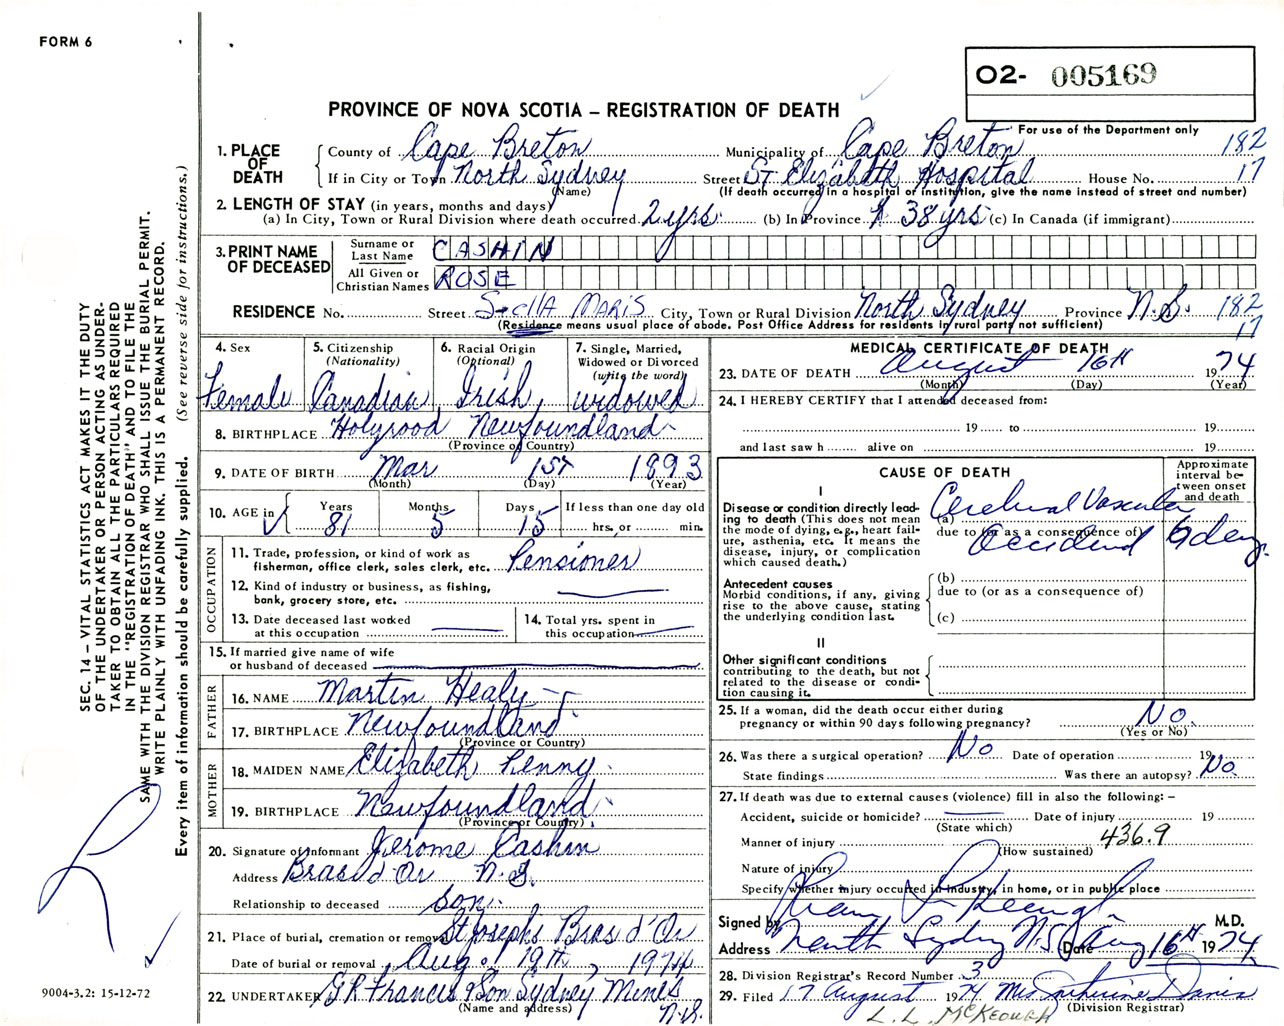 FORM 6
O2- 005169
PROVINCE OF NOVA SCOTIA – REGISTRATION OF DEATH
For use of the Department only
1. PLACE OF DEATH
County of Cape Breton Municipality of Cape Breton 182
If in City or Town North Sydney Street St Elizabeth Hospital House No. 17
(Name) (If death occurred in a hospital or institution, give the name instead of street and number)
2. LENGTH OF STAY (in years, months and days)
(a) In City, Town or Rural Division where death occurred 2 yrs. (b) In Province 38 yrs (c) In Canada (if immigrant)
3. PRINT NAME OF DECEASED
Surname or Last Name CASHIN
All Given or Christian Names ROSE
RESIDENCE No. Street MARIS City, Town or Rural Division North Sydney Province N.S. 182
(Residence means usual place of abode. Post Office Address for residents in rural parts not sufficient) 17
4. Sex Female
5. Citizenship (Nationality) Canadian
6. Racial Origin (Optional) Irish
7. Single, Married, Widowed or Divorced (write the word) widowed
8. BIRTHPLACE Holyrood Newfoundland
(Province or Country)
9. DATE OF BIRTH Mar 1st 1893
(Month) (Day) (Year)
10. AGE in Years 81 Months 5 Days 15 If less than one day old hrs. or min.
OCCUPATION
11. Trade, profession, or kind of work as fisherman, office clerk, sales clerk, etc. Pensioner
12. Kind of industry or business, as fishing, bank, grocery store, etc.
13. Date deceased last worked at this occupation
14. Total yrs. spent in this occupation
15. If married give name of wife or husband of deceased
FATHER
16. NAME Martin Healy
17. BIRTHPLACE Newfoundland
(Province or Country)
MOTHER
18. MAIDEN NAME Elizabeth Penny
19. BIRTHPLACE Newfoundland
(Province or Country)
20. Signature of Informant Jerome Cashin
Address Bras d'Or N.S.
Relationship to deceased Son
21. Place of burial, cremation or removal St Josephs Bras d'Or
Date of burial or removal Aug. 19th, 1974
22. UNDERTAKER G R Francis & Son Sydney Mines N.S.
(Name and address)
MEDICAL CERTIFICATE OF DEATH
23. DATE OF DEATH August 16th 1974
(Month) (Day) (Year)
24. I HEREBY CERTIFY that I attended deceased from:
19 to 19
and last saw h alive on 19
CAUSE OF DEATH
Approximate interval between onset and death
I
Disease or condition directly leading to death (This does not mean the mode of dying, e.g., heart failure, asthenia, etc. It means the disease, injury, or complication which caused death.)
(a) Cerebral Vascular Accident
due to (or as a consequence of)
6 days
Antecedent causes
Morbid conditions, if any, giving rise to the above cause, stating the underlying condition last.
(b)
due to (or as a consequence of)
(c)
II
Other significant conditions contributing to the death, but not related to the disease or condition causing it.
25. If a woman, did the death occur either during pregnancy or within 90 days following pregnancy? No.
(Yes or No)
26. Was there a surgical operation? No Date of operation 19
State findings Was there an autopsy? No
27. If death was due to external causes (violence) fill in also the following: –
Accident, suicide or homicide? Date of injury 19
(State which)
Manner of injury 436.9
(How sustained)
Nature of injury
Specify whether injury occurred in industry, in home, or in public place
Signed by M.D.
Address North Sydney N.S. Date Aug 16th 1974
28. Division Registrar's Record Number 3
29. Filed 17 August 1974 Mrs Catherine Davis
(Division Registrar)
L. L. McKEOUGH
SEC. 14 – VITAL STATISTICS ACT MAKES IT THE DUTY
OF THE UNDERTAKER OR PERSON ACTING AS UNDER-
TAKER TO OBTAIN ALL THE PARTICULARS REQUIRED
IN THE "REGISTRATION OF DEATH" AND TO FILE THE
SAME WITH THE DIVISION REGISTRAR WHO SHALL ISSUE THE BURIAL PERMIT.
WRITE PLAINLY WITH UNFADING INK. THIS IS A PERMANENT RECORD.
Every item of information should be carefully supplied. (See reverse side for instructions.)
9004-3.2: 15-12-72